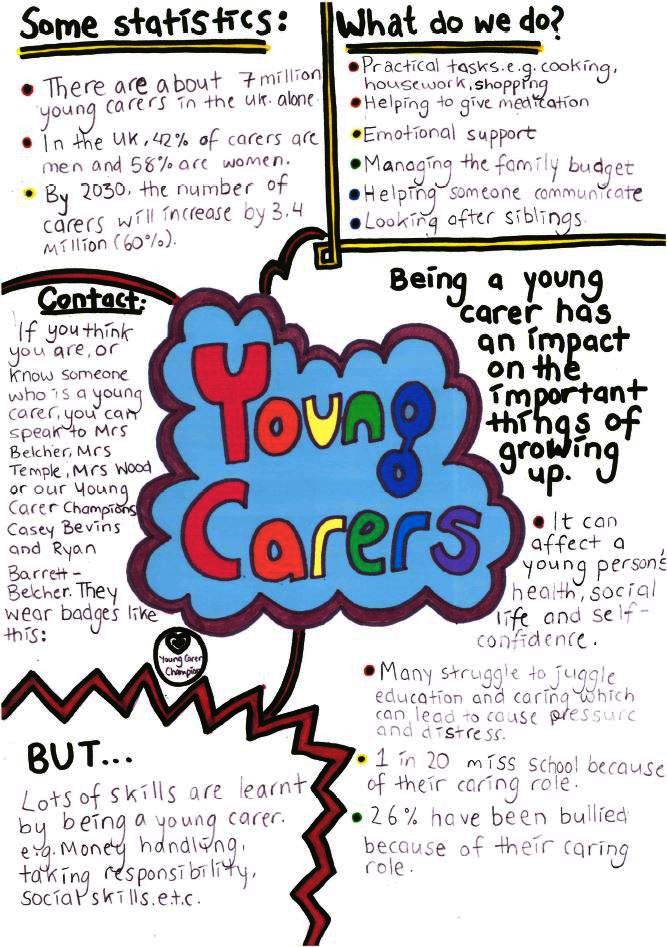 Some statistics:
• There are about 7 million
young carers in the uk alone.
• In the UK, 42% of carers are
men and 58% are women.
• By 2030, the number of
carers will increase by 3.4
million (60%).
What do we do?
• Practical tasks.e.g. cooking,
housework, shopping
• Helping to give medication
• Emotional support
• Managing the family budget
• Helping someone communicate
• Looking after siblings.
Contact:
If you think
you are, or
know someone
who is a young
carer, you can
speak to Mrs
Belcher, Mrs
Temple, Mrs Wood
or our Young
Carer Champions
Casey Bevins
and Ryan
Barrett-
Belcher. They
wear badges like
this:
Young Carer
Champion
Young
Carers
Being a young
carer has
an impact
on the
important
things of
growing
up.
• It can
affect a
young person's
health, social
life and self-
confidence.
• Many struggle to juggle
education and caring which
can lead to cause pressure
and distress.
• 1 in 20 miss school because
of their caring role.
• 26% have been bullied
because of their caring
role.
BUT...
Lots of skills are learnt
by being a young carer.
e.g. Money handling,
taking responsibility,
social skills.e.t.c.